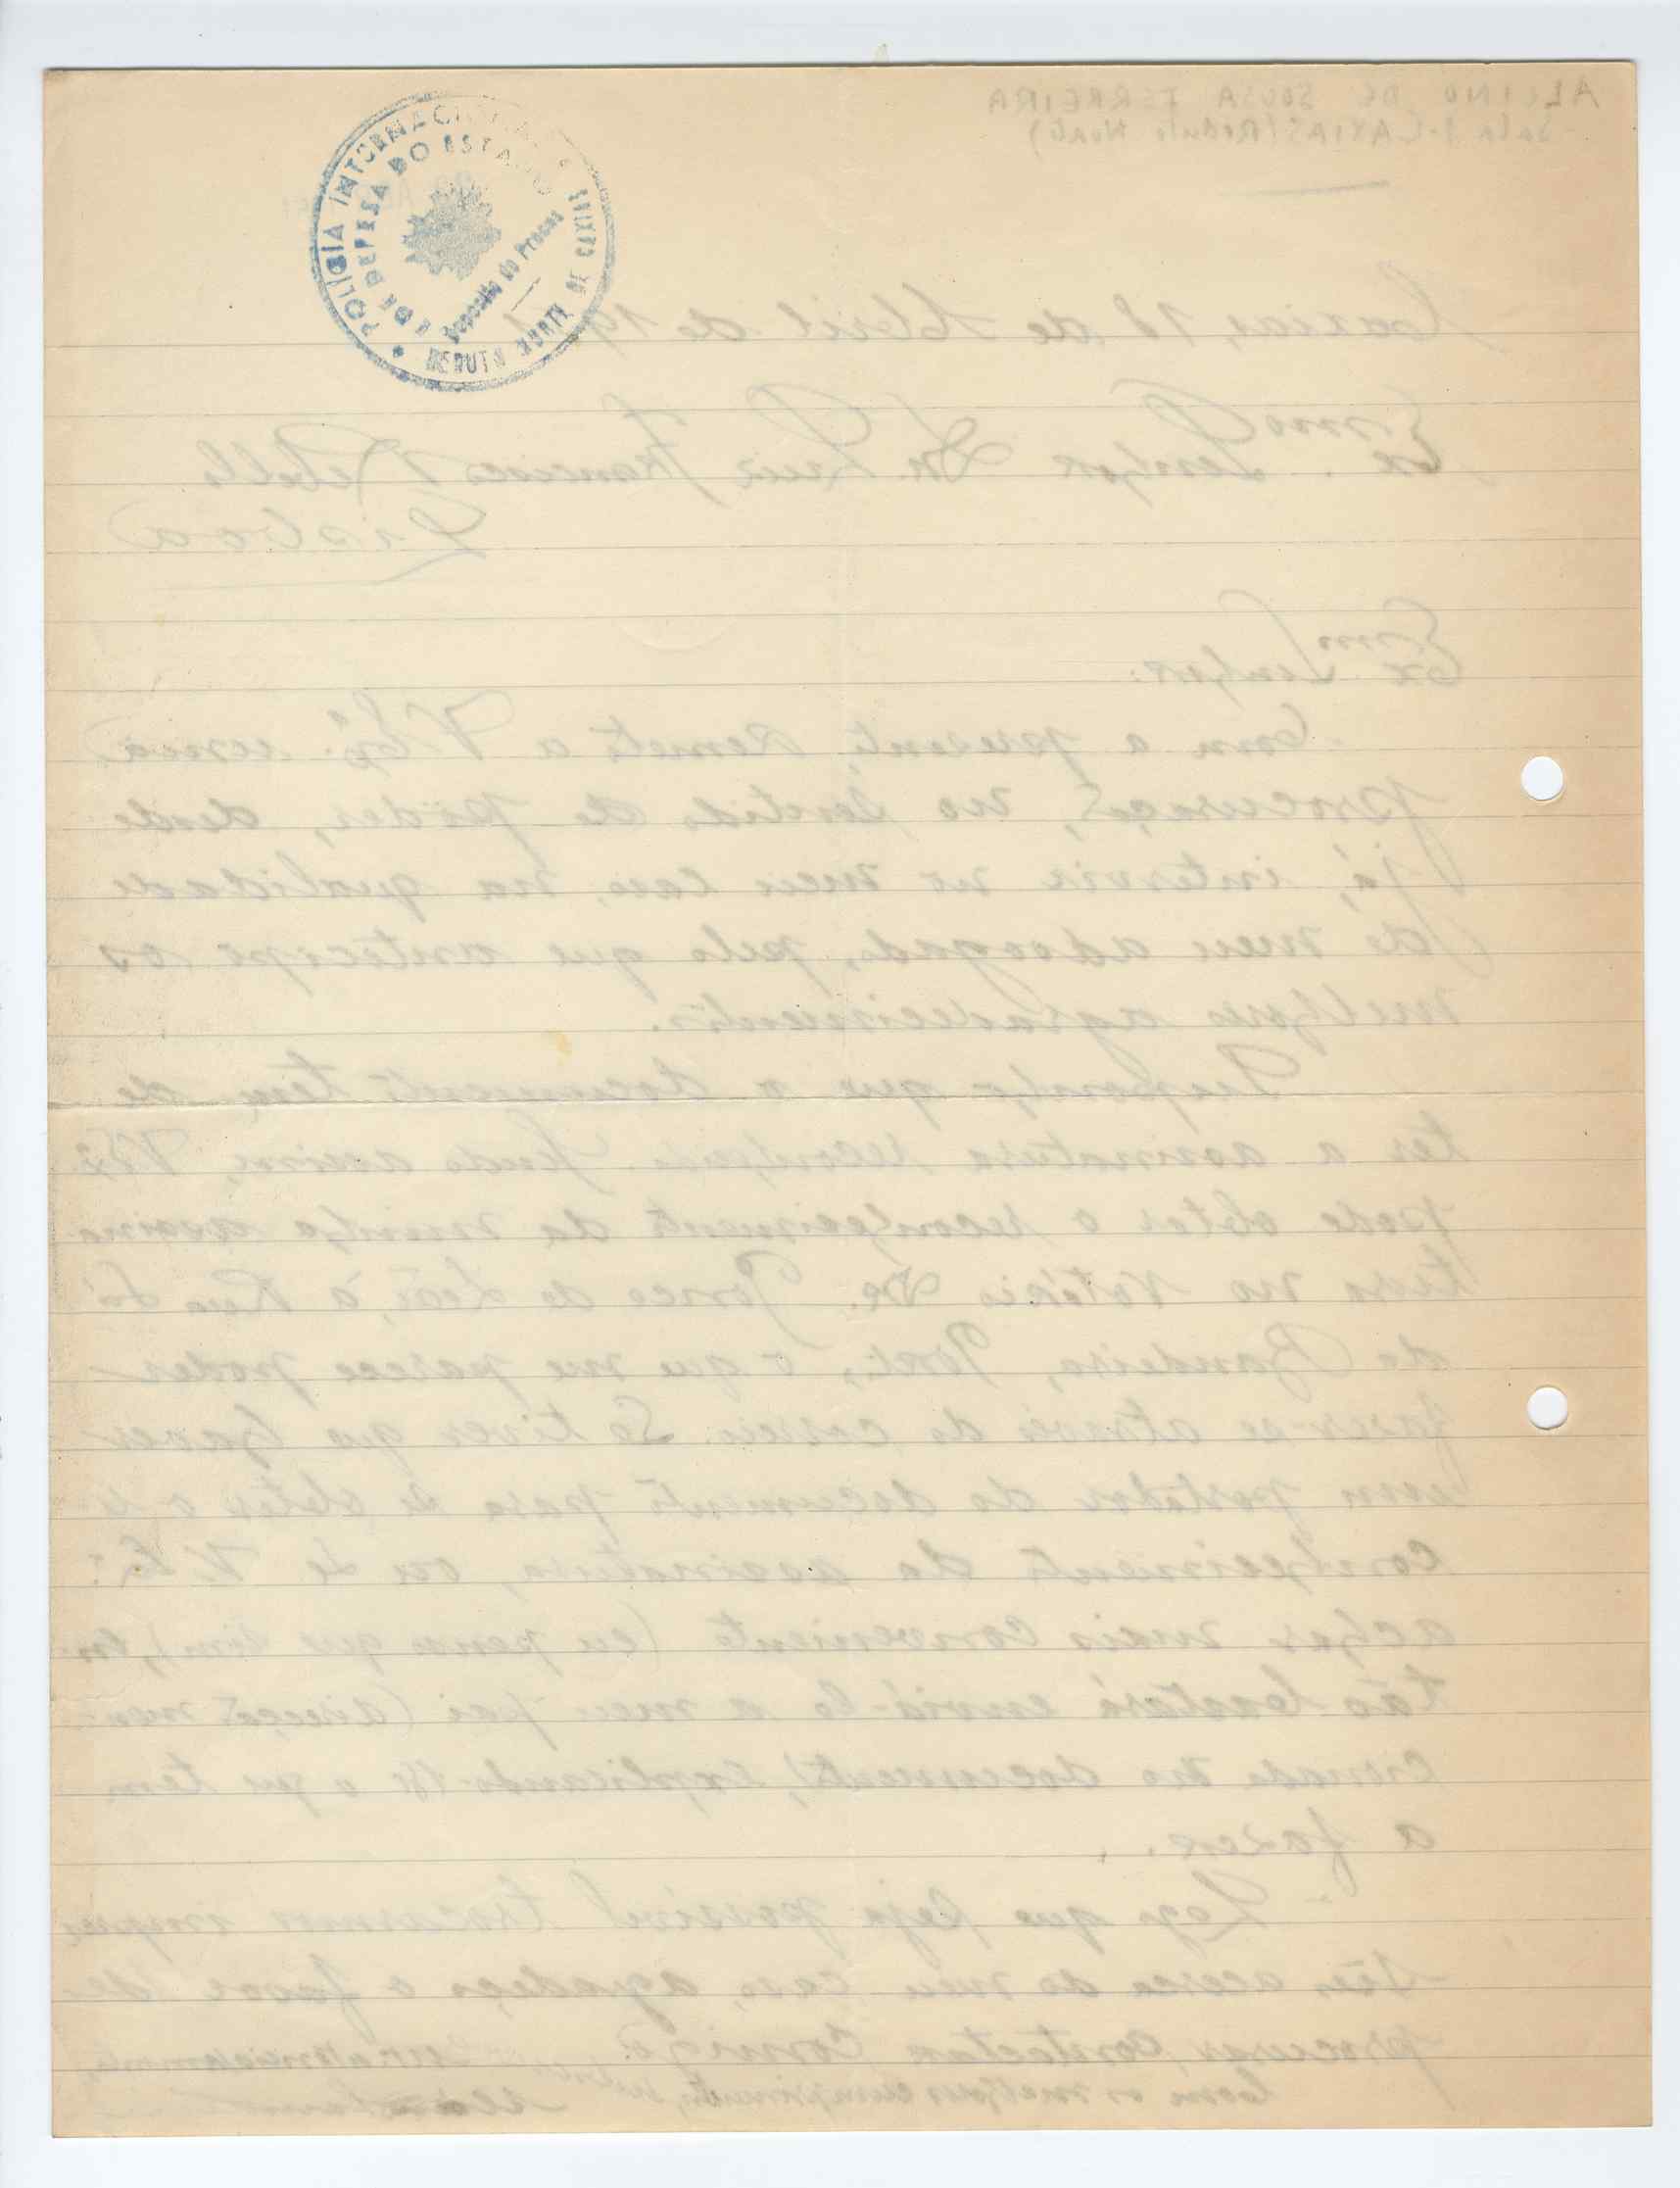 ALCINO DE SOUSA FERREIRA
- Sala 1 - CAXIAS (Reduto Norte)
POLICIA INTERNACIONAL E
DE DEFESA DO ESTADO
Deposito de Presos
REDUTO NORTE DE CAXIAS
Caxias, 18 de Abril de 19
Exmo. Senhor Dr. Luiz Francisco Rebello
Lisboa
Exmo Senhor:
Com a presente remeto a V. Exª. uma
procuração, no sentido de poder, desde
já, intervir no meu caso, na qualidade
de meu advogado, pelo que antecipo os
melhores agradecimentos.
Suponho que o documento tem de
ter a assinatura reconhecida. Sendo assim, V. Exª
pode obter o reconhecimento da minha assina
tura no Notário Dr. Ponce de Leão, à Rua Sá
da Bandeira, Porto, o que me parece poder
fazer-se através do correio. Se tiver que haver
um portador do documento para se obter o re
conhecimento da assinatura, ou se V. Ex.ª
achar mais conveniente (eu penso que sim), en-
tão bastará enviá-lo a meu pai (direcção men-
cionada no documento), explicando-lhe o que tem
a fazer.
Logo que seja possível trocarmos impres
sões acerca do meu caso, agradeço o favor de
procurar contactar comigo.
Com os melhores cumprimentos,